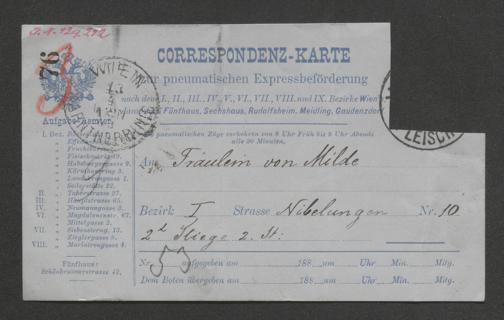 I.N. 124.212
76
CORRESPONDENZ-KARTE
zur pneumatischen Expressbeförderung
nach dem I., II., III., IV., V., VI., VII., VIII. und IX. Bezirke Wien
Fünfhaus, Sechshaus, Rudolfsheim, Meidling, Gaudenzdorf
WIEN
LEISCH
pneumatischen Züge verkehren von 8 Uhr Früh bis 9 Uhr Abends
alle 20 Minuten.
I. Bez.
Fleischmarkt 19.
Habsburgergasse 9.
Kärnthnerring 3.
Landskrongasse 1.
Seilerstätte 22.
II. Taborstrasse 27.
III. Hauptstrasse 65.
IV. Neumanngasse 3.
VI. Magdalenenstr. 67.
Mittelgasse 2.
VII. Siebensterng. 13.
Zieglergasse 8.
VIII. Maria Treugasse 4.
Fünfhaus:
Schönbrunnerstrasse 42.
An Fräulein von Milde
Bezirk I Strasse Nibelungen Nr. 10
2te Stiege 2. St:
53
Nr. aufgegeben am 188 um Uhr Min. Mttg.
Dem Boten übergeben am 188 um Uhr Min. Mttg.